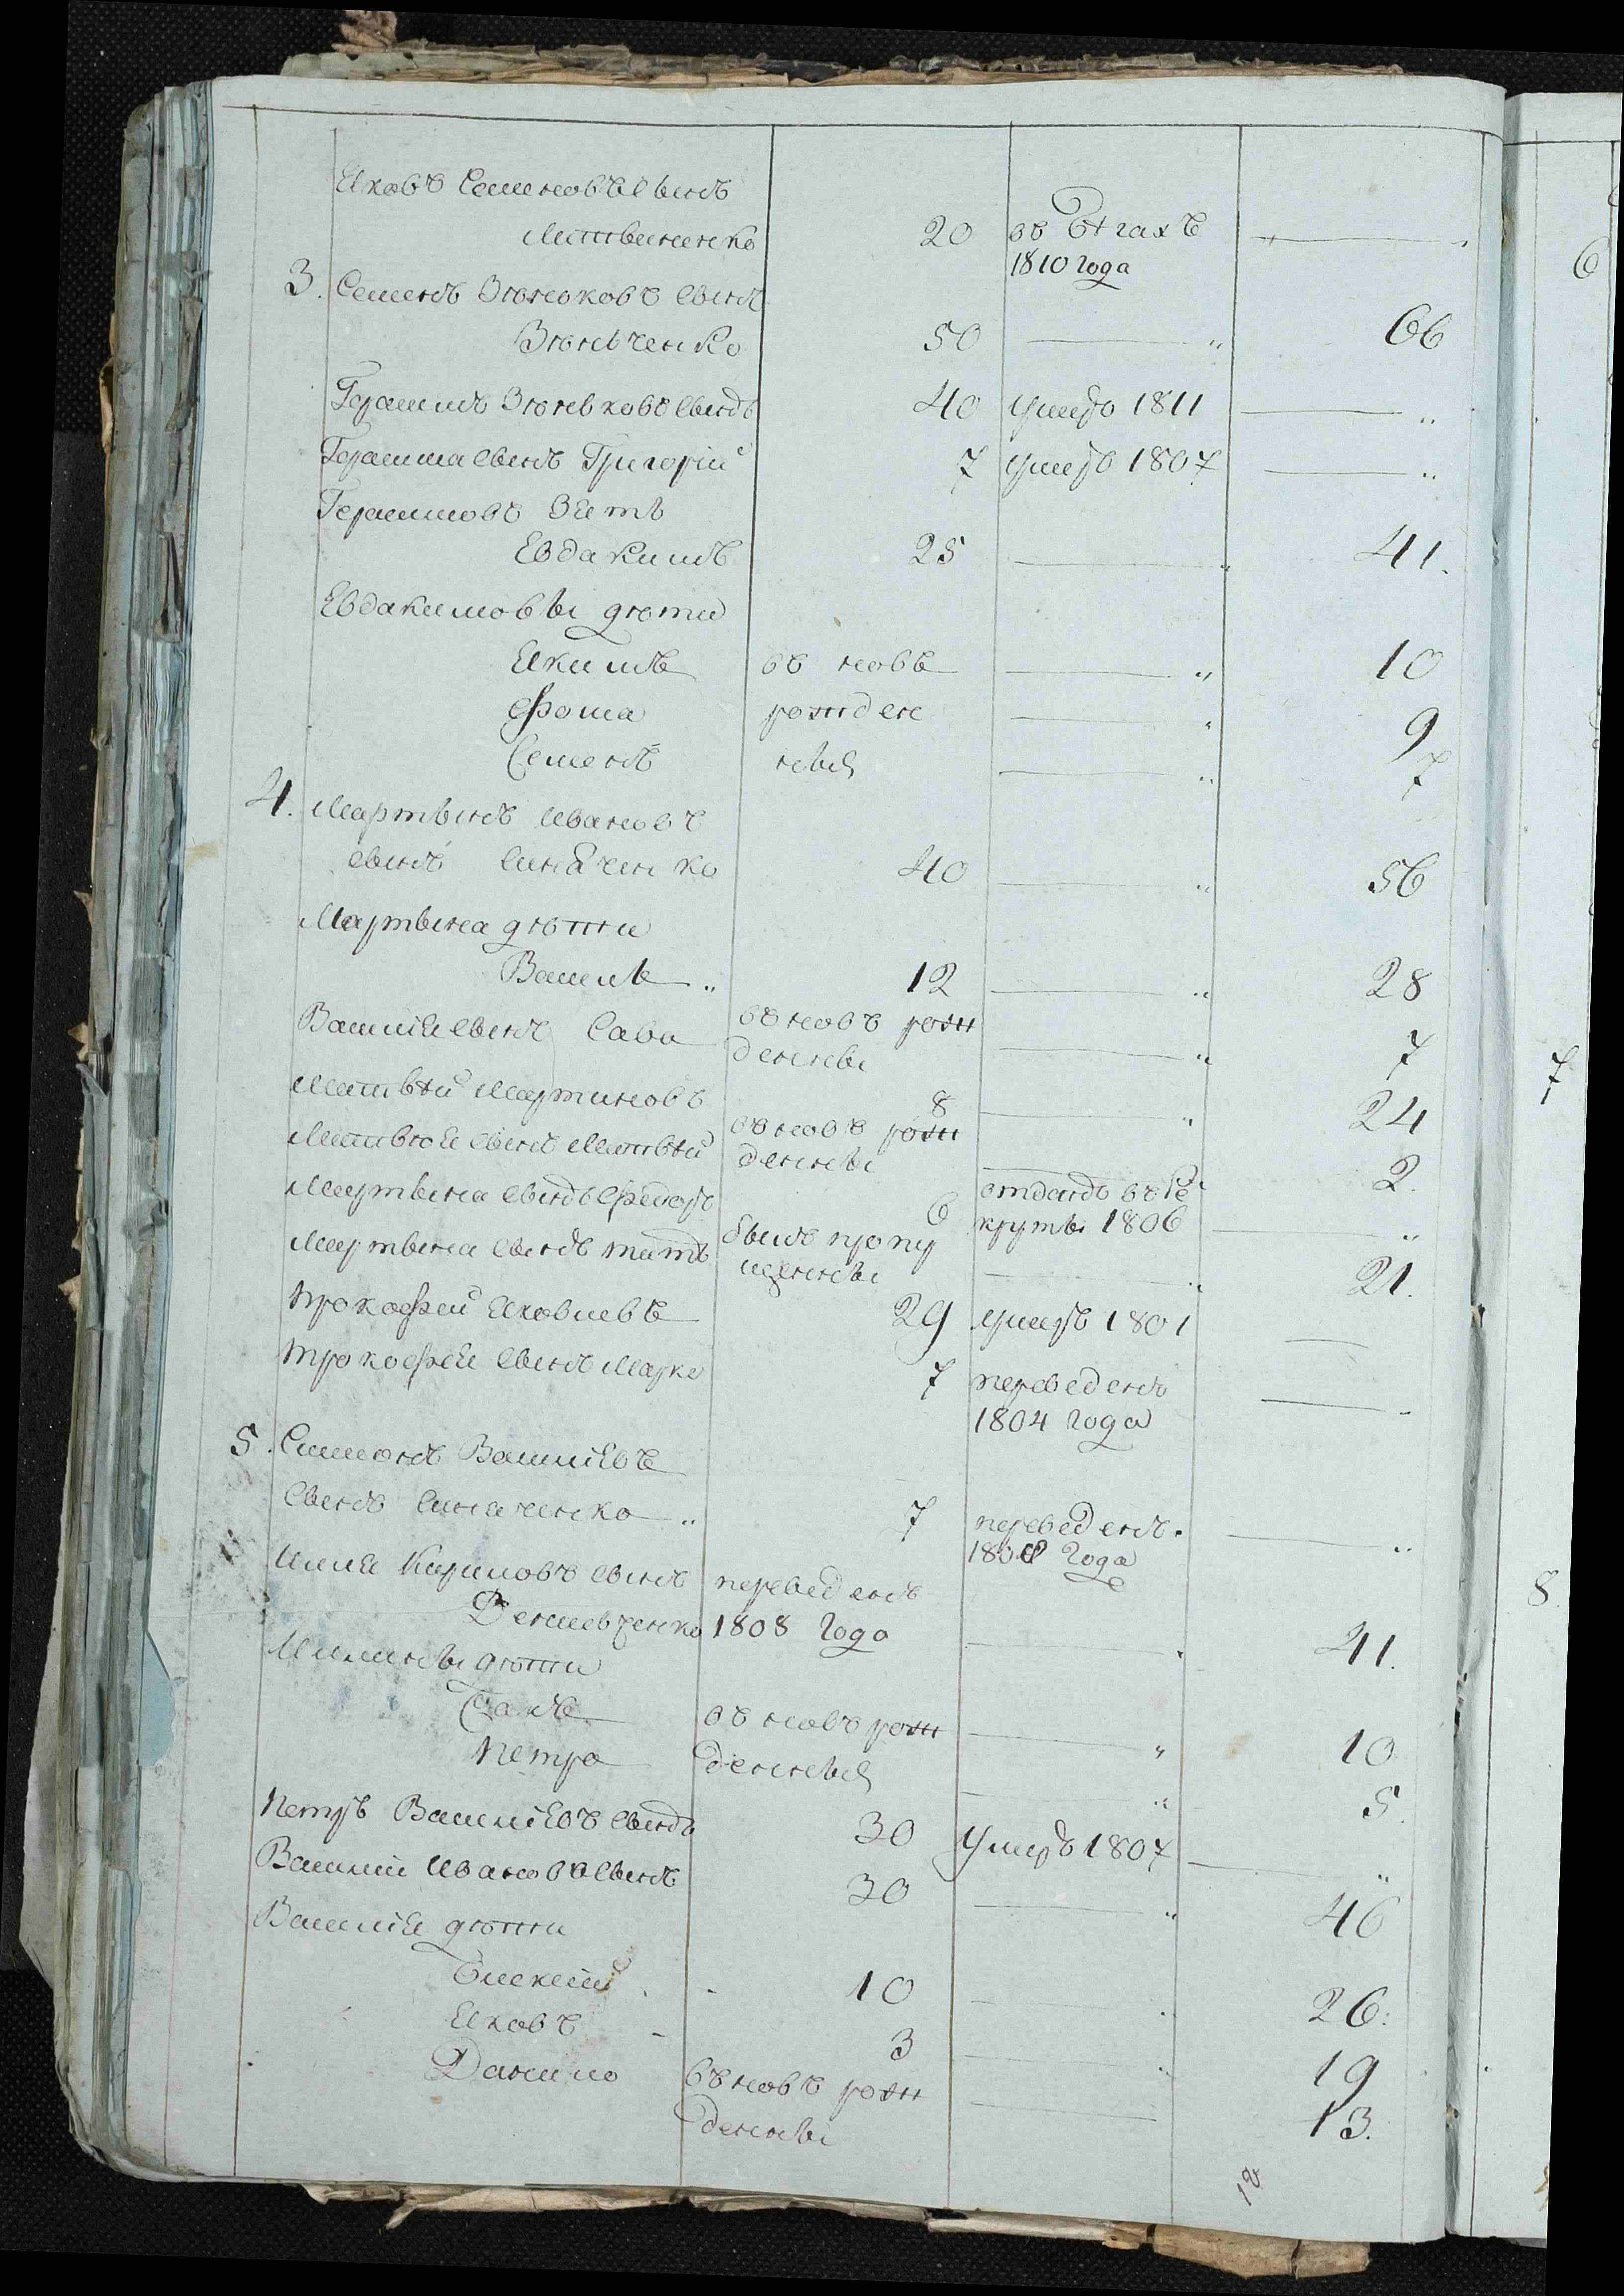 Яковъ Семеновъ сынъ
Литвиненко 20 въ бѣгахъ — „
1810 года
3. Семенъ Зѣньковъ сынъ
Зѣнѣченко 50 — „ 66
Герасимъ Зѣньковъ сынъ 40 умеръ 1811 — „
Герасима сынъ Григорій 7 умеръ 1807 — „
Герасимовъ Зять
Евдакимъ 25 — „ 41.
Евдакимовы дѣти
Якимъ въ новѣ — „ 10
Фома рожден — „ 9
Семенъ ныя — „ 7
4. Мартынъ Ивановъ
сынъ Синяченко 40 — „ 56
Мартына дѣтти
Василь „ 12 — „ 28
Василія сынъ Сава въ новѣ рож
денны — „ 7
Матвѣй Мартиновъ 8 — „ 24
Матвѣя сынъ Матвѣй въ новѣ рож
денны — 2.
Мартына сынъ Федоръ 6 отданъ въ ре
круты 1806 — „
Мартына сынъ титъ былъ пропу
щенны — „ 21.
Прокофей Яковлевъ 29 умеръ 1801 —
Прокофея сынъ Марко 7 переведенъ
1804 года — „
5. Симонъ Василіевъ
сынъ Синяченко „ 7 переведенъ. — „
180 года
Илия Кириловъ сынъ переведенъ
Денисовченко 1808 года — „ 41.
дѣтти
въ новѣ рож — „ 10
Петро денныя — „ 5.
Петръ Василіевъ сынъ 30 Умеръ 1807 — „
Василий Ивановъ сынъ 30 — „ 46
Василія дѣтти
Алексѣй 10 — „ 26.
Яковъ 3 — „ 19
Данило въ новѣ рож — 13.
денны
12
6
7
8.